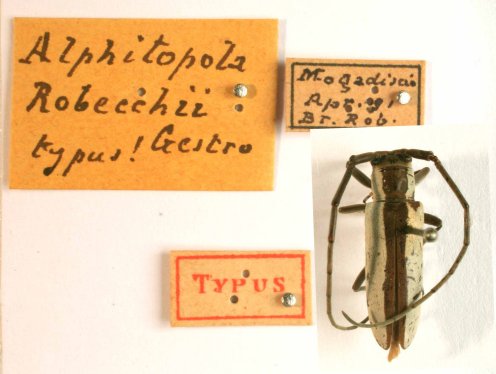 Alphitopola
Robecchii
typus! Gestro
Mogadiscio
Apr. 91
Br. Rob.
TYPUS